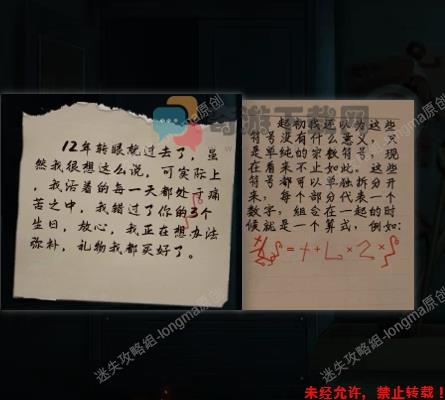 12年转眼就过去了，虽
然我很想这么说，可实际上
，我活着的每一天都处于痛
苦之中，我错过了你的3个
生日，放心，我正在想办法
弥补，礼物我都买好了。
起初我还以为这些
符号没有什么意义，只
是单纯的宗教符号，现
在看来不止如此。这些
符号都可以单独拆分开
来，每个部分代表一个
数字，组合在一起的时
候就是一个算式，例如：
奇游下载网
迷失攻略组-longma原创
迷失攻略组-longma原创
未经允许，禁止转载！